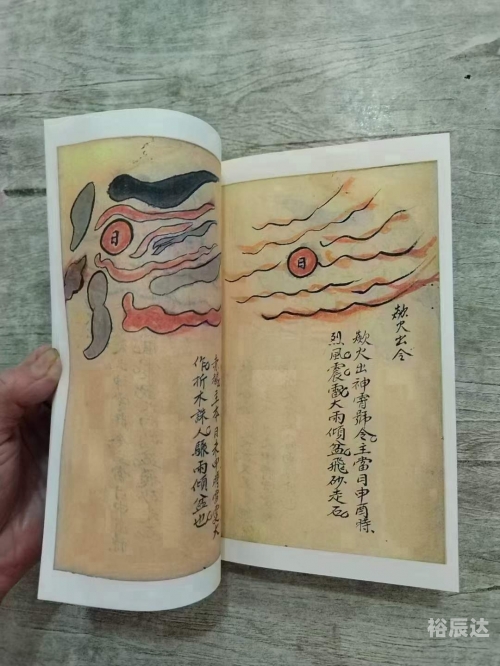 欻火出令
欻火出神霄號令主當日申酉時
烈風震雷大雨傾盆飛砂走石
日
日
主本日未申
作折木誅人驟雨傾盆也
裕辰达